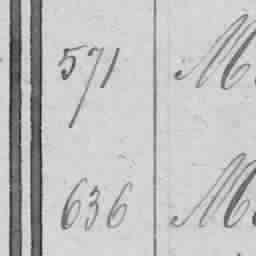 571 M
636 M